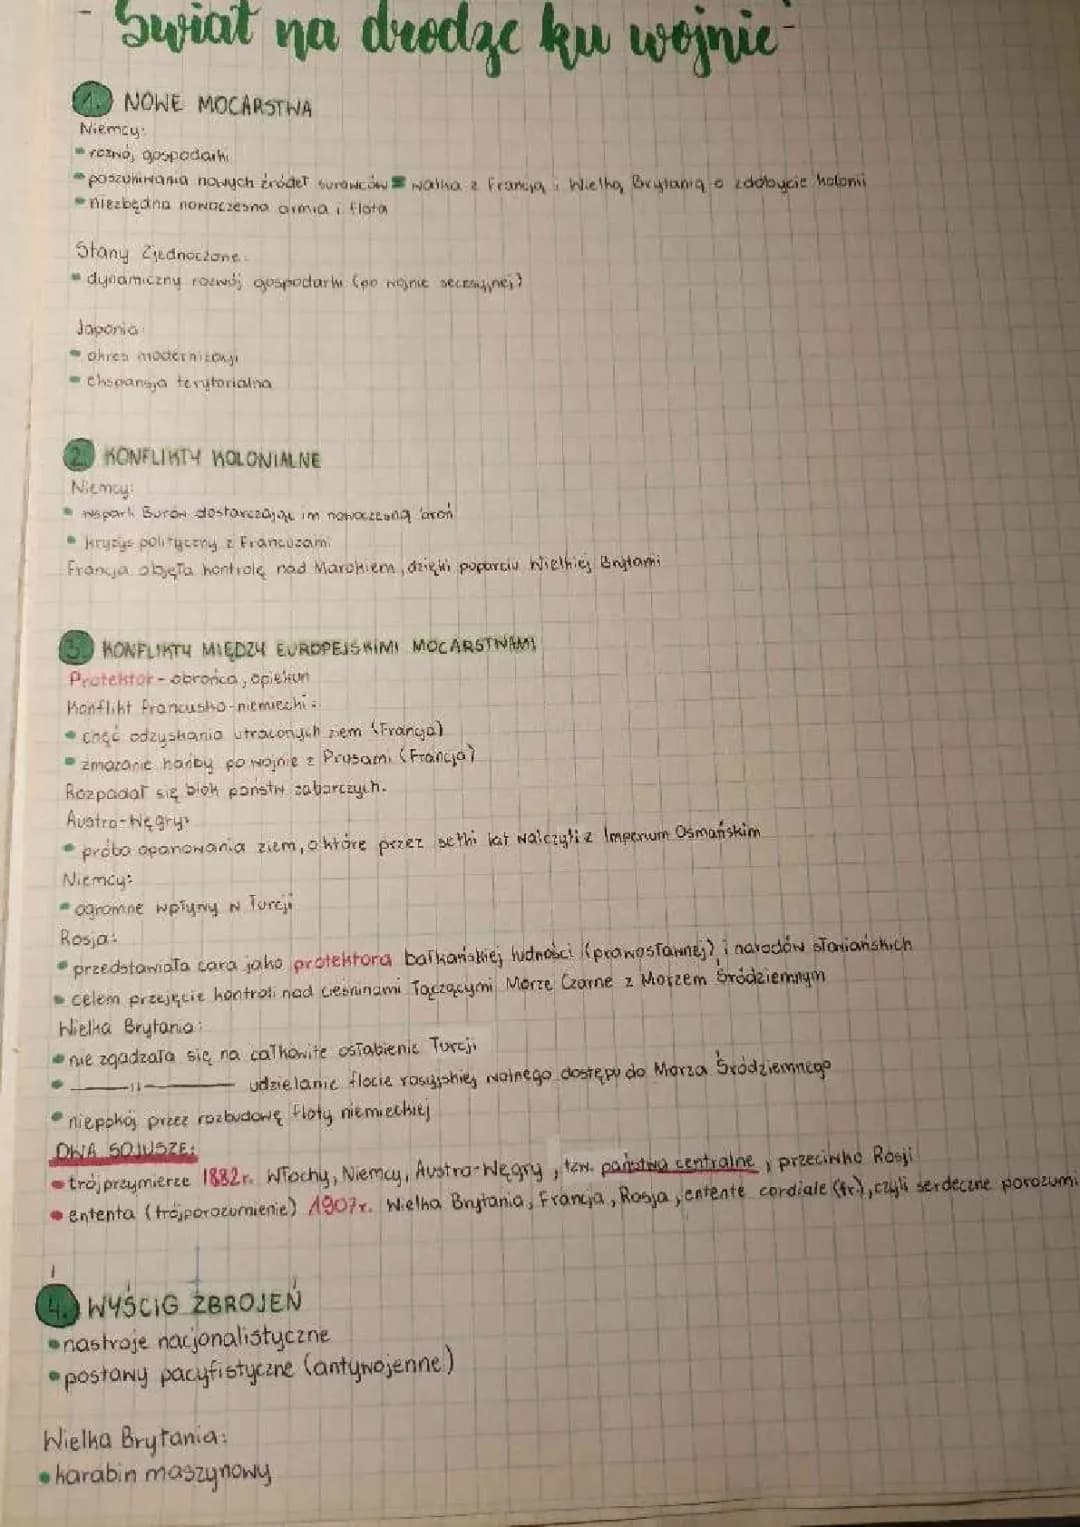 - Świat na drodze ku wojnie -
1. NOWE MOCARSTWA
Niemcy:
• rozwój gospodarki
• poszukiwania nowych źródeł surowców = walka z Francją i Wielką Brytanią o zdobycie kolonii
• niezbędna nowoczesna armia i flota
Stany Zjednoczone:
• dynamiczny rozwój gospodarki (po wojnie secesyjnej)
Japonia:
• okres modernizacji
• ekspansja terytorialna
2. KONFLIKTY KOLONIALNE
Niemcy:
• wsparli Burów dostarczając im nowoczesną broń
• kryzys polityczny z Francuzami
Francja objęła kontrolę nad Marokiem, dzięki poparciu Wielkiej Brytami
3. KONFLIKTY MIĘDZY EUROPEJSKIMI MOCARSTWAMI
Protektor - obrońca, opiekun
Konflikt francusko-niemiecki:
• chęć odzyskania utraconych ziem (Francja)
• zmazanie hańby po wojnie z Prusami (Francja)
Rozpadał się blok państw zaborczych.
Austro-Węgry:
• próba opanowania ziem, o które przez setki lat walczyli z Imperium Osmańskim
Niemcy:
• ogromne wpływy w Turcji
Rosja:
• przedstawiała cara jako protektora bałkańskiej ludności (prawosławnej) i narodów słowiańskich
• celem przejęcie kontroli nad cieśninami łączącymi Morze Czarne z Morzem Śródziemnym
Wielka Brytania:
• nie zgadzała się na całkowite osłabienie Turcji
• —————"————— udzielanie flocie rosyjskiej wolnego dostępu do Morza Śródziemnego
• niepokój przez rozbudowę floty niemieckiej
DWA SOJUSZE:
• trójprzymierze 1882r. Włochy, Niemcy, Austro-Węgry, tzw. państwa centralne, przeciwko Rosji
• ententa (trójporozumienie) 1907r. Wielka Brytania, Francja, Rosja, entente cordiale (fr.), czyli serdeczne porozumi
4. WYŚCIG ZBROJEŃ
• nastroje nacjonalistyczne
• postawy pacyfistyczne (antywojenne)
Wielka Brytania:
• karabin maszynowy